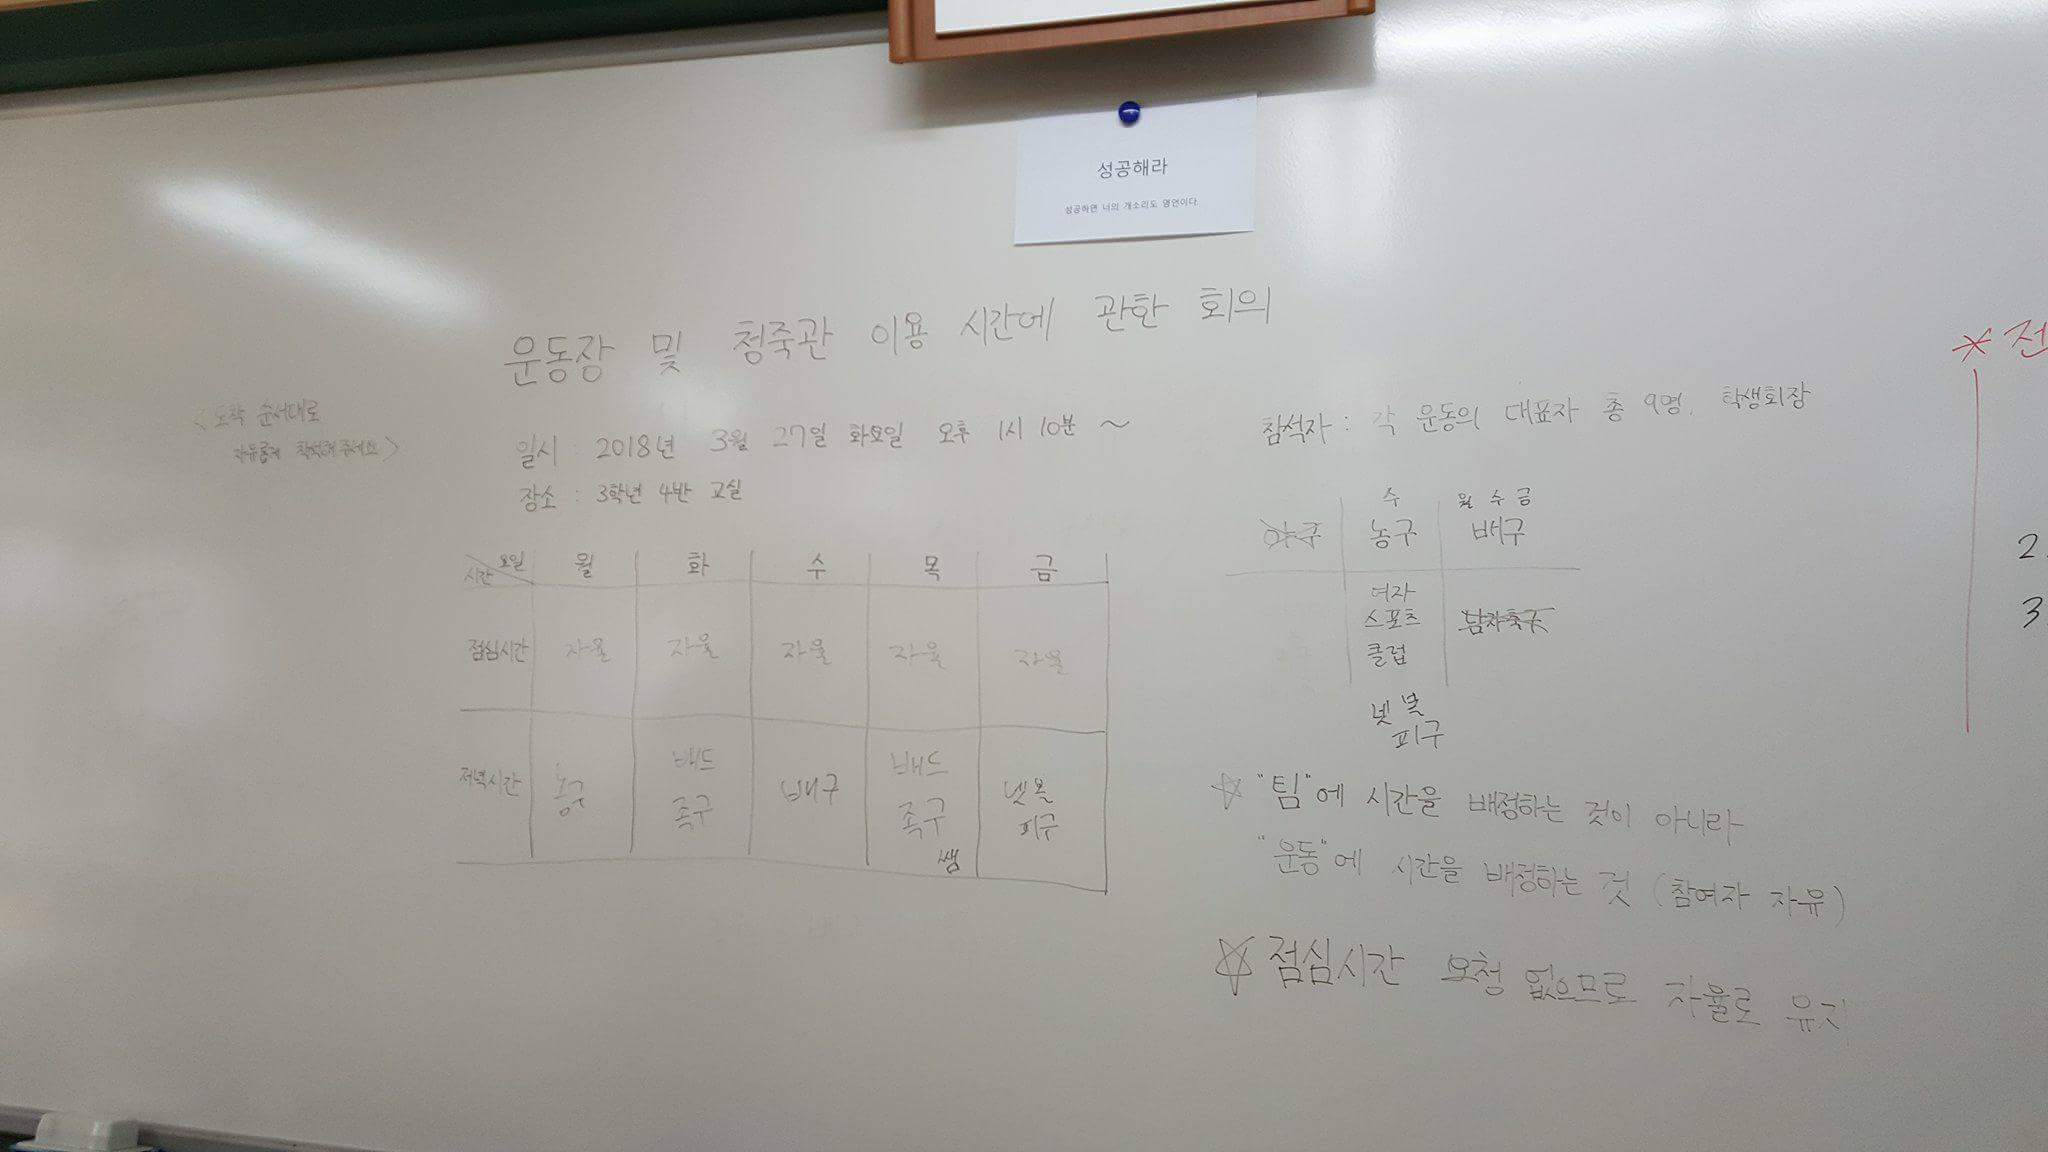 성공해라
성공하면 너의 개소리도 명언이다.
운동장 및 청죽관 이용 시간에 관한 회의
<도착 순서대로
자유롭게 착석해주세요>
일시 : 2018년 3월 27일 화요일 오후 1시 10분 ~
장소 : 3학년 4반 교실
요일 시간 월 화 수 목 금
점심시간 자율 자율 자율 자율 자율
저녁시간 농구 배드 족구 배구 배드 족구 쌤 넷볼 피구
참석자 : 각 운동의 대표자 총 9명, 학생회장
수 월 수 금
야구 농구 배구
여자
스포츠 남자축구
클럽
넷볼
피구
☆ "팀"에 시간을 배정하는 것이 아니라
"운동"에 시간을 배정하는 것 (참여자 자유)
☆ 점심시간 요청 없으므로 자율로 유지
* 전
2.
3